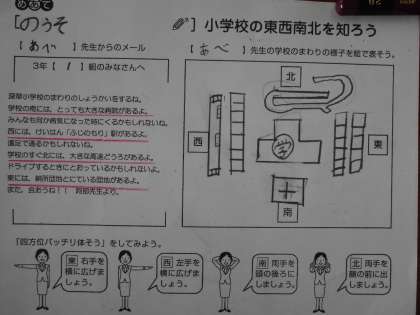 めあて
[のうそ
]小学校の東西南北を知ろう
【あべ】先生からのメール
【あべ】先生の学校のまわりの様子を絵で表そう。
3年【1】組のみなさんへ
小学校のまわりのしょうかいをするね。
学校の南には、とっても大きな病院があるよ。
みんなも何か病気になった時にくるかもしれないね。
西には、けいはん「ふじのもり」駅があるよ。
遠足で通るかもしれないね。
学校のすぐ北には、大きな高速どうろがあるよ。
ドライブするときにとおっているかもしれないよ。
東には、納所団地とにている団地があるよ。
また、会おうね！！
北
西
学
東
南
「四方位バッチリ体そう」をしてみよう。
東 右手を横に広げましょう。
西 左手を横に広げましょう。
南 両手を頭の後ろにしましょう。
北 両手を顔の前に出しましょう。